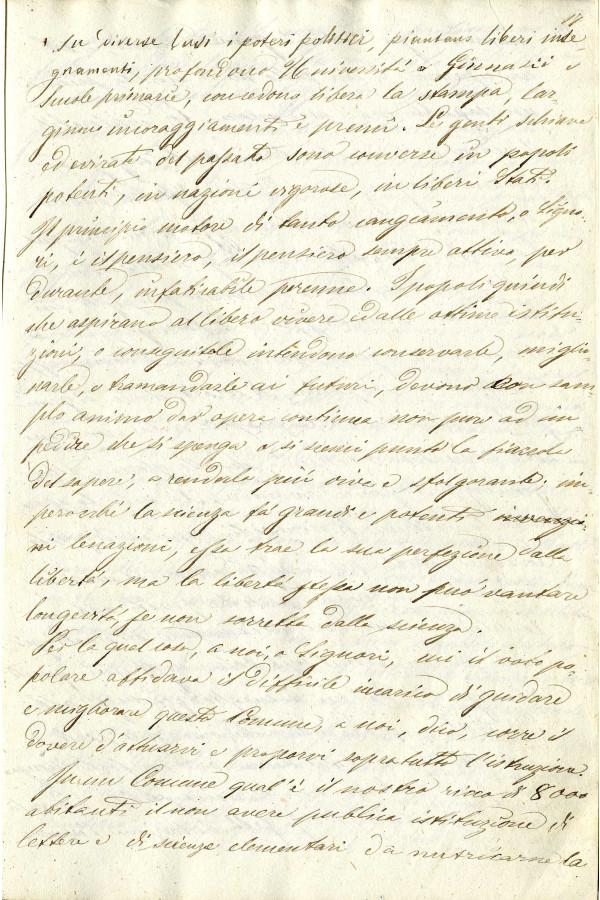 su diverse basi i poteri politici, piantano liberi inse
gnamenti, profondono Università e Ginnasii e
Scuole primarie, concedono libera la stampa, lar
giscono incoraggiamenti e premii. Le genti, schiave
ed evirate del passato sono converse in popoli
potenti, in nazioni vigorose, in liberi Stati.
Il principio motore di tanto cangiamento, o Signo-
ri, è il pensiero, il pensiero sempre attivo, per
durante, infaticabile perenne. I popoli quindi
che aspirano al libero vivere ed alle ottime istitu-
zioni, o conseguitole intendono conservarle, miglio
rarle, e tramandarle ai futuri, devono con
animo dar opera continua non pure ad im
pedire che si spenga o si scemi punto la fiaccola
del sapere, a renderla più viva e sfolgorante: im
perocché la scienza fa grandi e potenti
le nazioni, essa trae la sua perfezione dalla
libertà, ma la libertà stessa non può vantare
longevità, se non sorretta dalla scienza.
Per la qual cosa, a noi, o Signori, cui il voto po-
polare affidava il difficile incarico di guidare
e migliorare questo Comune, a noi, dico, corre il
dovere d'attuarvi e proporvi sopratutto l'istruzione.
In un Comune qual'è il nostro ricco di 8000
abitanti il non avere publica istituzione di
lettere e di scienze elementari da nutricarne la